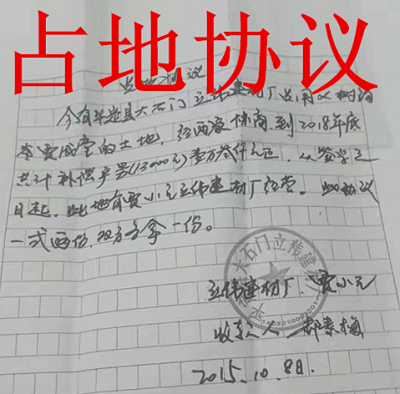 占地协议
占地协议
今有平
县大石门立伟建材厂占用
本贾成堂的土地,经两家协商到2018年底
共计补偿
(13000元)壹万叁仟元正,从签字之
日起,此地有贾小元立伟建材厂经营。此协议
一式两份,双方各拿一份。
大石门立伟建
立伟建材厂:贾小元
收款人 郝素梅
2015.10.8日.